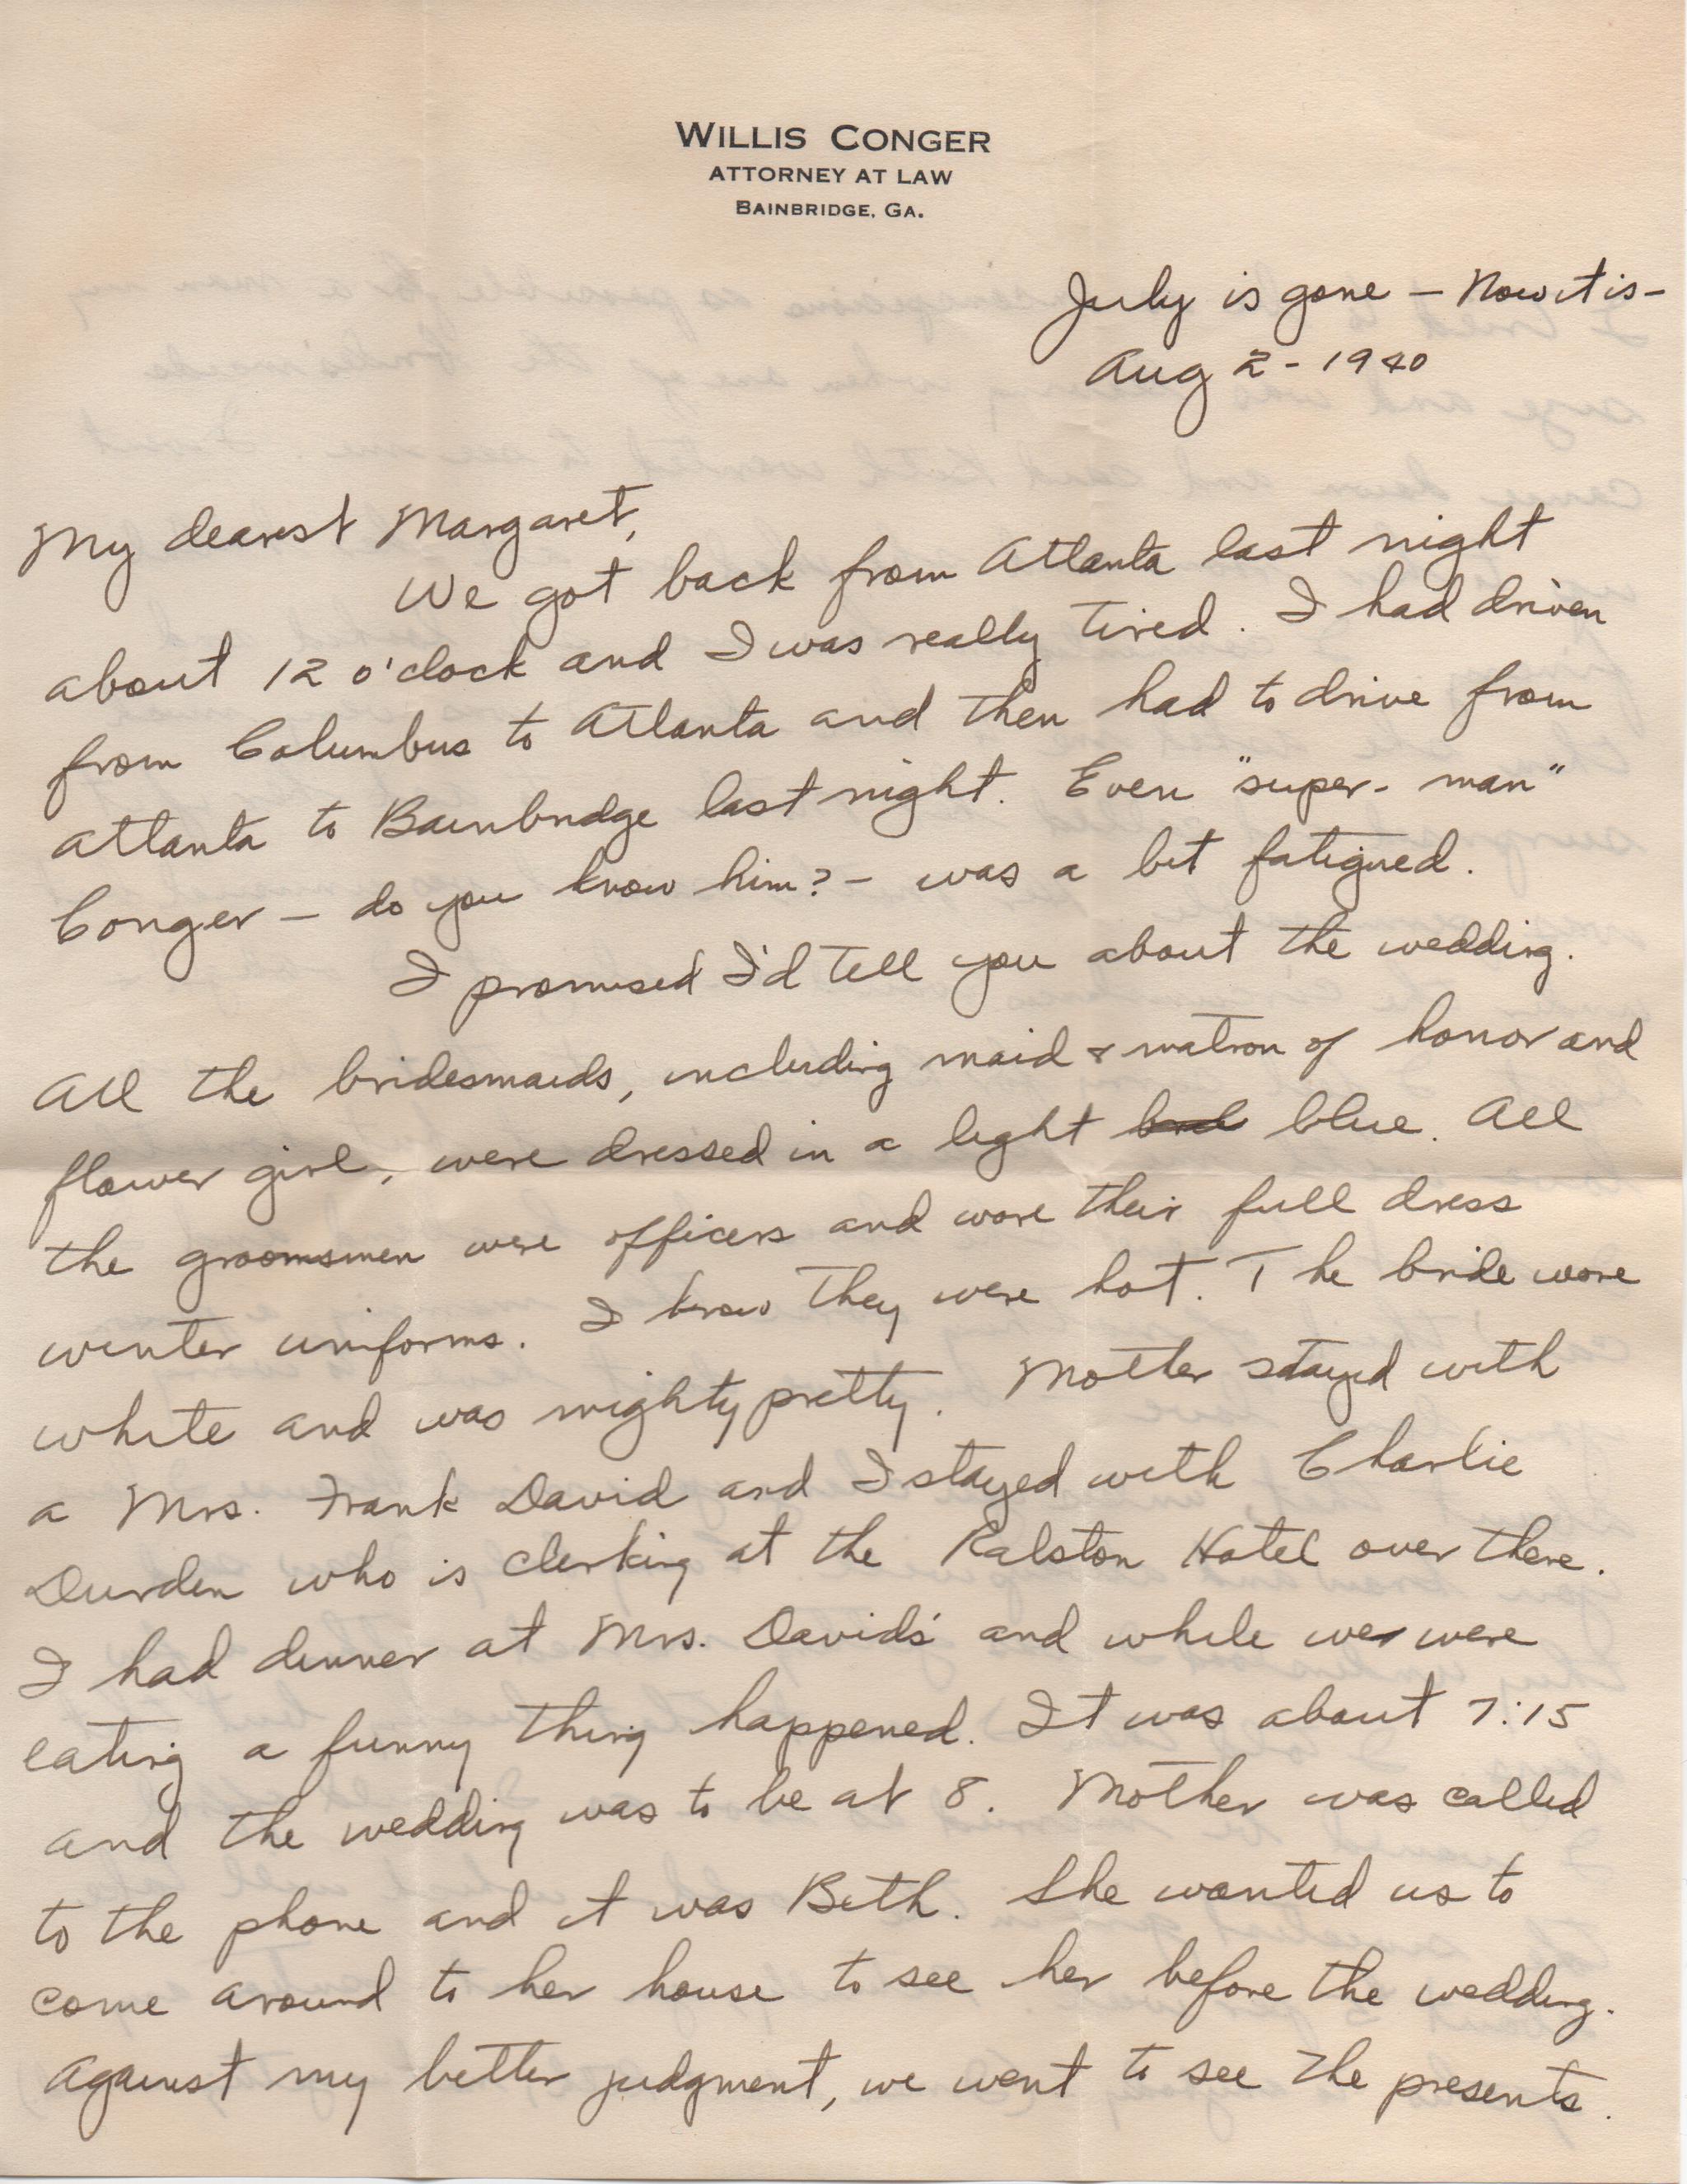 WILLIS CONGER
ATTORNEY AT LAW
BAINBRIDGE, GA.
July is gone – Now it is –
Aug 2 - 1940
My dearest Margaret,
We got back from Atlanta last night
about 12 o'clock and I was really tired. I had driven
from Columbus to Atlanta and then had to drive from
Atlanta to Bainbridge last night. Even "super-man"
Conger – do you know him? – was a bit fatigued.
I promised I'd tell you about the wedding.
All the bridesmaids, including maid & matron of honor and
flower girl, were dressed in a light blue. All
the groomsmen were officers and wore their full dress
winter uniforms. I know they were hot. The bride wore
white and was mighty pretty. Mother stayed with
a Mrs. Frank David and I stayed with Charlie
Durden who is clerking at the Ralston Hotel over there.
I had dinner at Mrs. David's and while we were
eating a funny thing happened. It was about 7:15
and the wedding was to be at 8. Mother was called
to the phone and it was Beth. She wanted us to
come around to her house to see her before the wedding.
Against my better judgment, we went to see the presents.